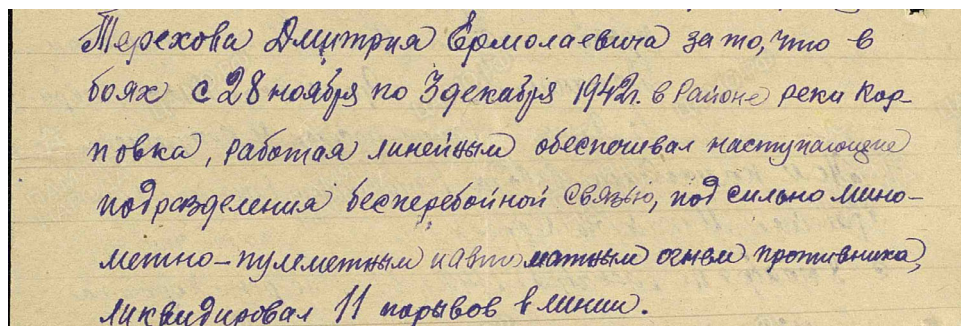 Терехова Дмитрия Ермолаевича за то, что в
боях с 28 ноября по 3 декабря 1942г. в районе реки Кар-
повка, работая линейным обеспечивал наступающие
подразделения бесперебойной связью, под сильно мино-
метно-пулеметным и автоматным огнем противника,
ликвидировал 11 порывов в линии.